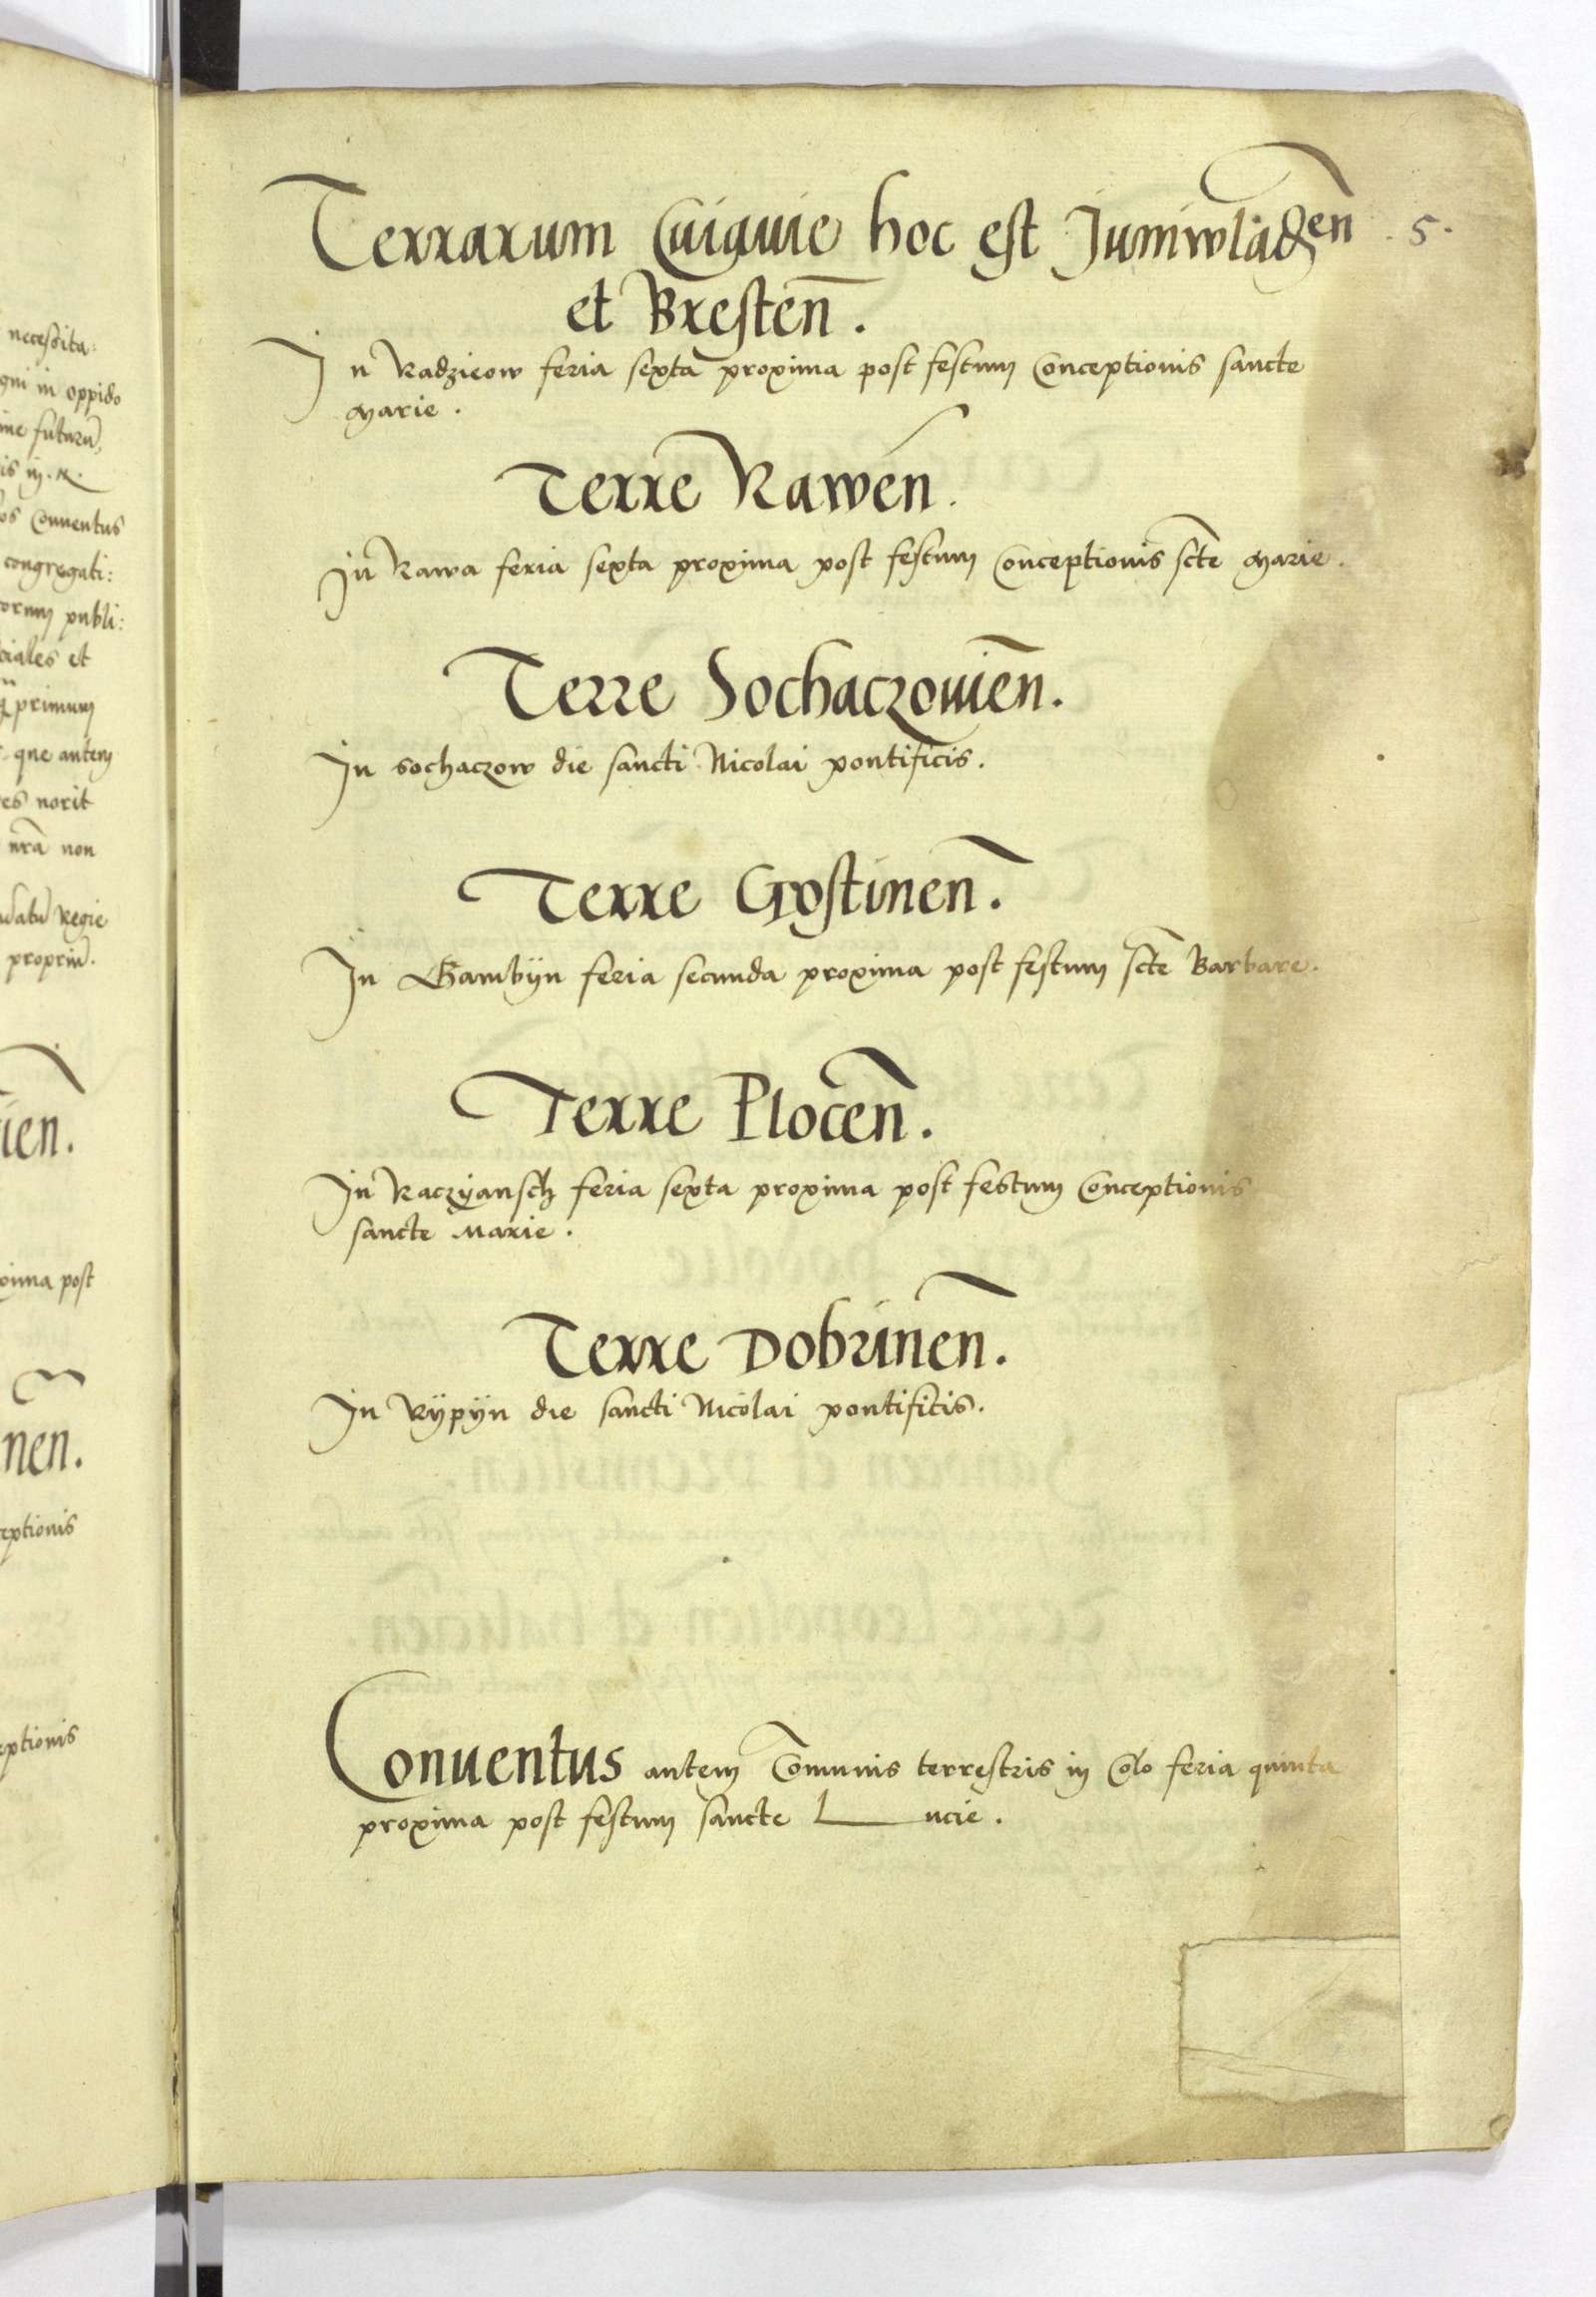 necessita:
gni in oppido
ime futurũ,
is in. R.
os Conuentus
congregati:
orum publi:
iales et
primum
que autem
es norit
nrã non
datũ Regie
propriũ.
ien.
xima post
nen.
eptionis
eptionis
Terrarum Cuiauie hoc est Juniwladen̄ . 5 .
et Bresten̄ .
In Radzieow feria sexta proxima post festum Conceptionis sancte
Marie .
Terre Rawen̄ .
In Rawa feria sexta proxima post festum Conceptionis scte Marie .
Terre Sochaczouien̄ .
In Sochaczow die sancti Nicolai pontificis .
Terre Gostinen̄ .
In Gambÿn feria secunda proxima post festum scte Barbare .
Terre Plocen̄ .
In Raczÿansch feria sexta proxima post festum Conceptionis
sancte Marie .
Terre Dobrinen̄ .
In Rÿpÿn die sancti Nicolai pontificis .
Conuentus autem Cõmunis terrestris in Colo feria quinta
proxima post festum sancte Lucie .